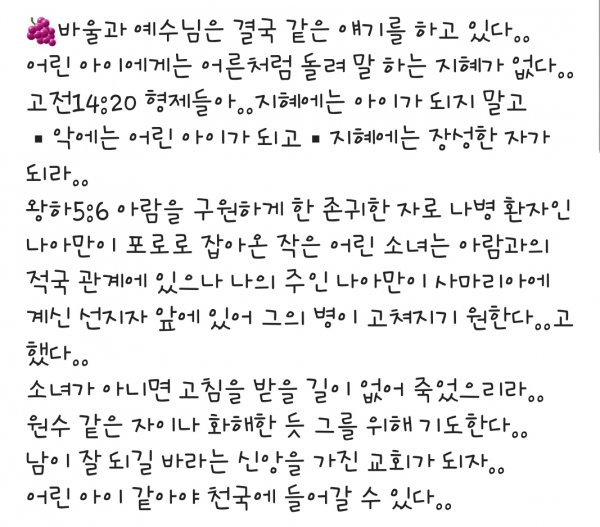 🍇바울과 예수님은 결국 같은 얘기를 하고 있다..
어린 아이에게는 어른처럼 돌려 말 하는 지혜가 없다..
고전14:20 형제들아..지혜에는 아이가 되지 말고
▪악에는 어린 아이가 되고▪지혜에는 장성한 자가
되라..
왕하5:6 아람을 구원하게 한 존귀한 자로 나병 환자인
나아만이 포로로 잡아온 작은 어린 소녀는 아람과의
적국 관계에 있으나 나의 주인 나아만이 사마리아에
계신 선지자 앞에 있어 그의 병이 고쳐지기 원한다..고
했다..
소녀가 아니면 고침을 받을 길이 없어 죽었으리라..
원수 같은 자이나 화해한 듯 그를 위해 기도한다..
남이 잘 되길 바라는 신앙을 가진 교회가 되자..
어린 아이 같아야 천국에 들어갈 수 있다..